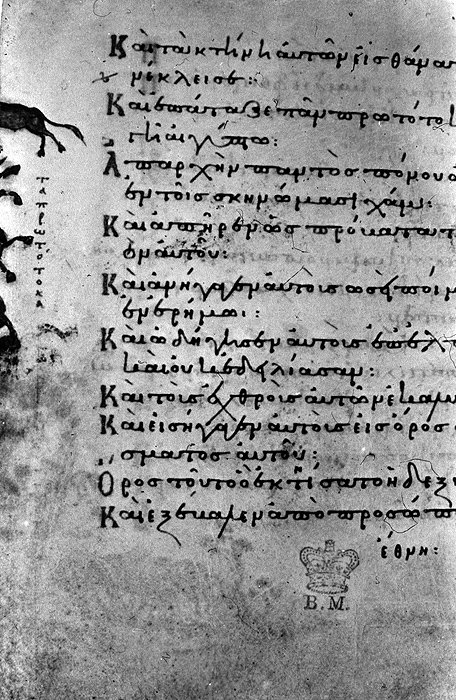 Καὶ τὰ κτήνη αὐτῶν εἰς θάνα
νέκλεισε:
Καὶ ἐπάταξε πᾶν πρωτότο
γῆ αἰγύπτω:
Ἀπαρχὴν παντὸς πόνου α
ἐν τοῖς σκηνώμασι χάμ:
Καὶ ἀπῆρεν ὡς πρόβατα τ
αὐτοῦ:
Καὶ ἀνήγαγεν αὐτοὺς ὡσεὶ ποίμ
ἐν ἐρήμω:
Καὶ ὡδήγησεν αὐτοὺς ἐν ἐλπ
καὶ οὐκ ἐδειλίασαν:
Καὶ τοὺς ἐχθροὺς αὐτῶν ἐκάλυ
Καὶ εἰσήγαγεν αὐτοὺς εἰς ὄρος
σματος αὐτοῦ:
Ὄρος τοῦτο ὃ ἐκτήσατο ἡ δεξι
Καὶ ἐξέβαλεν ἀπὸ προσώπ
ἔθνη:
ΤΑ ΠΡΩΤΟΤΟΚΑ
B.M.